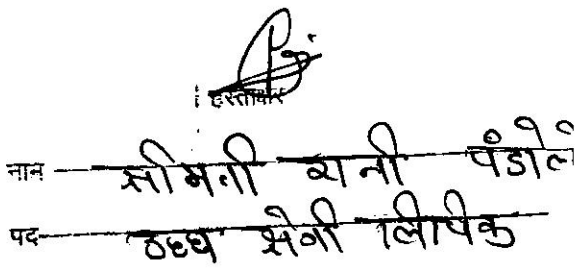 हस्ताक्षर
नाम श्रीमती रानी पंडोले
पद श्रेणी लिपिक